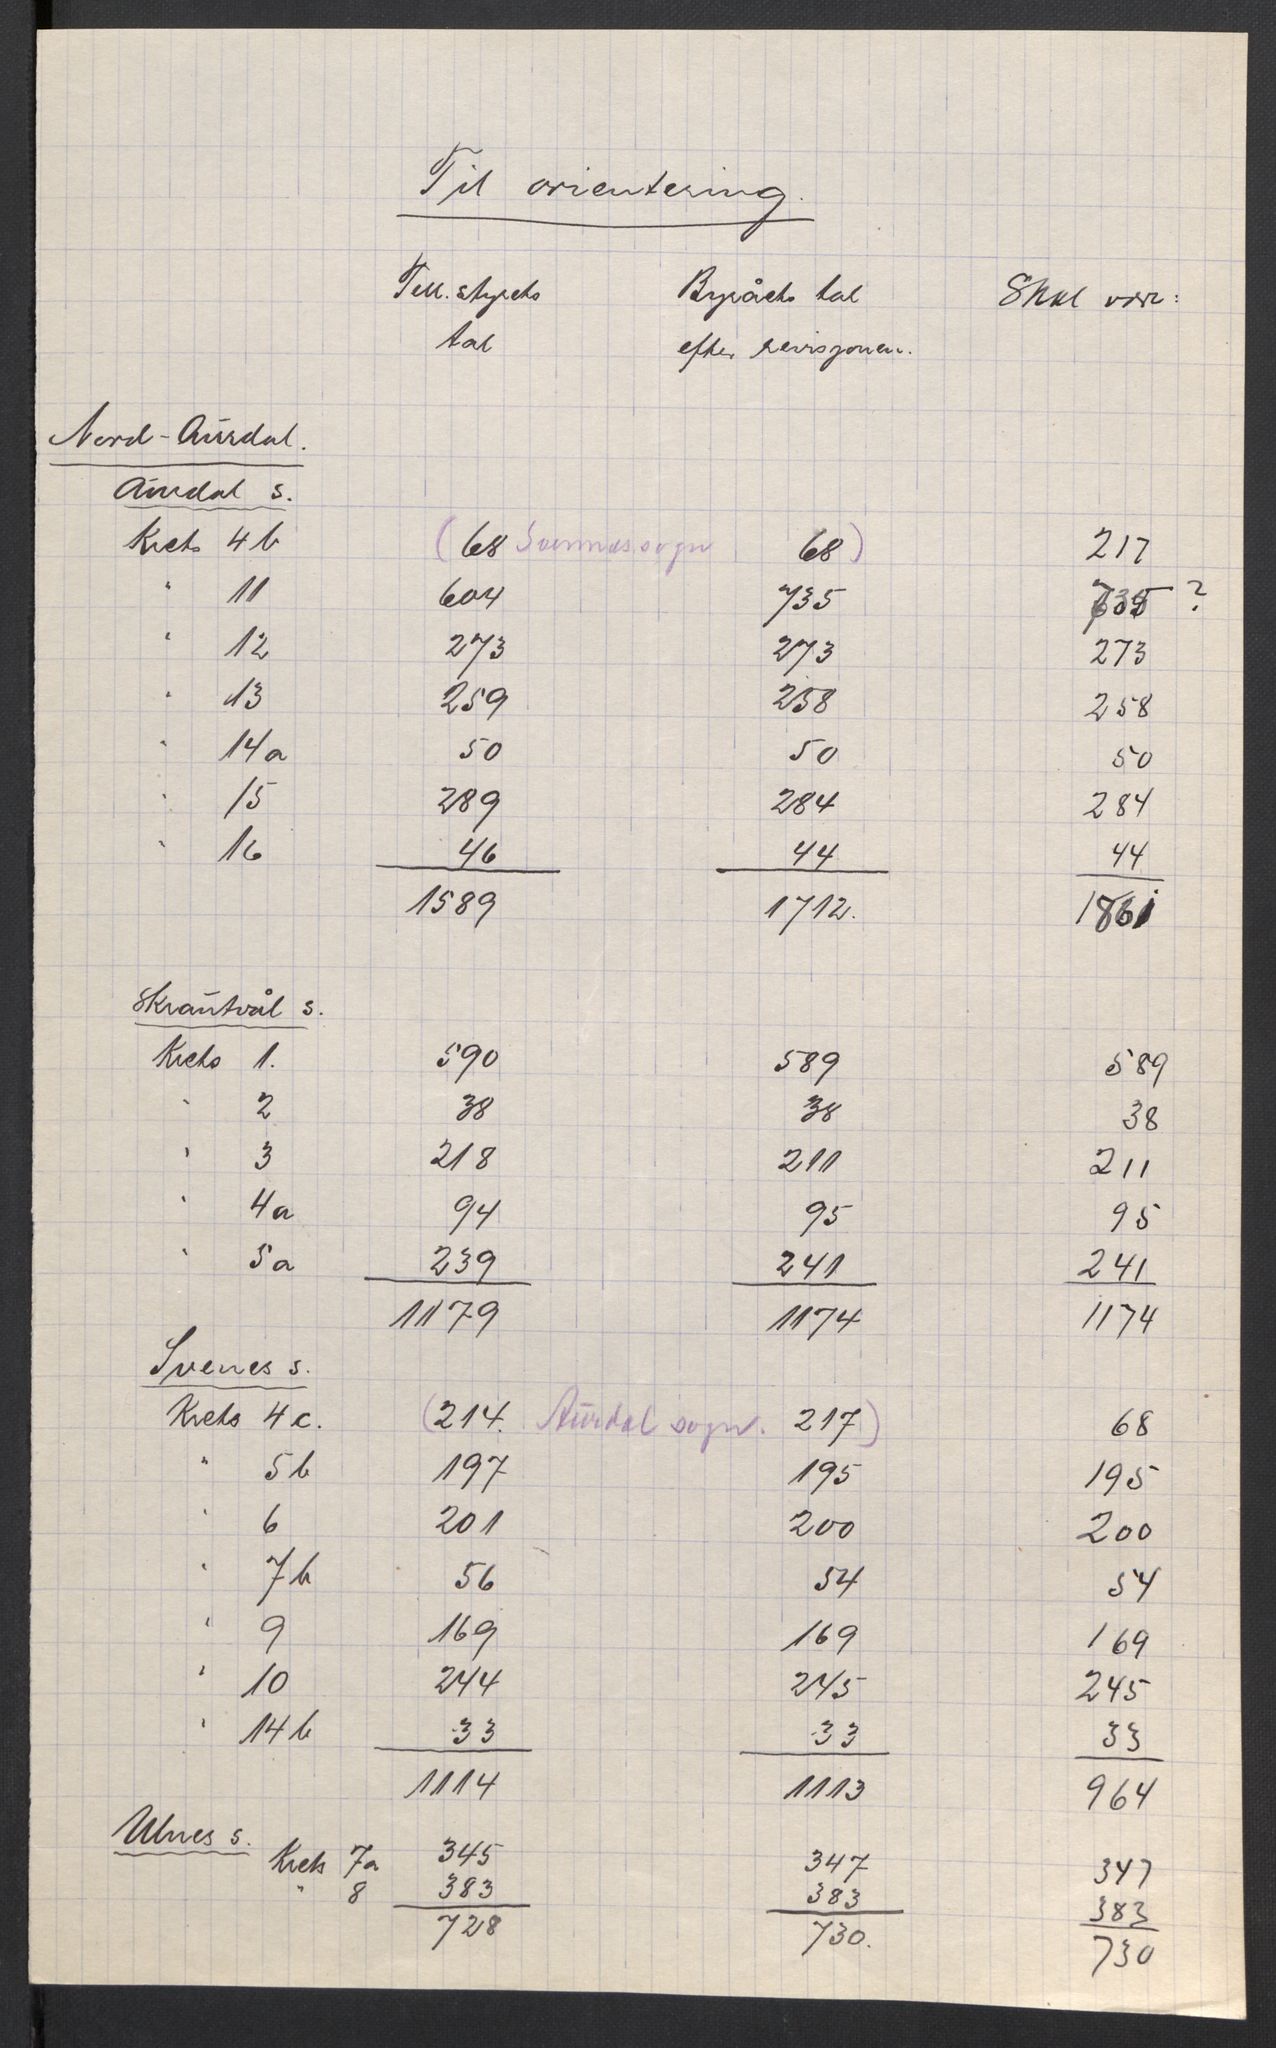 Til orientering.
Tell. styrets tal	Byråets tal efter revisjonen.	Skal være:
Nord-Aurdal.
Aurdal s.
Krets 4b	(68 Svennes sogn	68)	217
" 11	604	735	735 ?
" 12	273	273	273
" 13	259	258	258
" 14a	50	50	50
" 15	289	284	284
" 16	46	44	44
1589	1712.	1861
Skrautvål s.
Krets 1.	590	589	589
" 2	38	38	38
" 3	218	211	211
" 4a	94	95	95
" 5a	239	241	241
1179	1174	1174
Svenes s.
Krets 4c.	(214. Aurdal sogn.	217)	68
" 5b	197	195	195
" 6	201	200	200
" 7b	56	54	54
" 9	169	169	169
" 10	244	245	245
" 14b	33	33	33
1114	1113	964
Ulnes s.
Krets 7a	345	347	347
" 8	383	383	383
728	730.	730